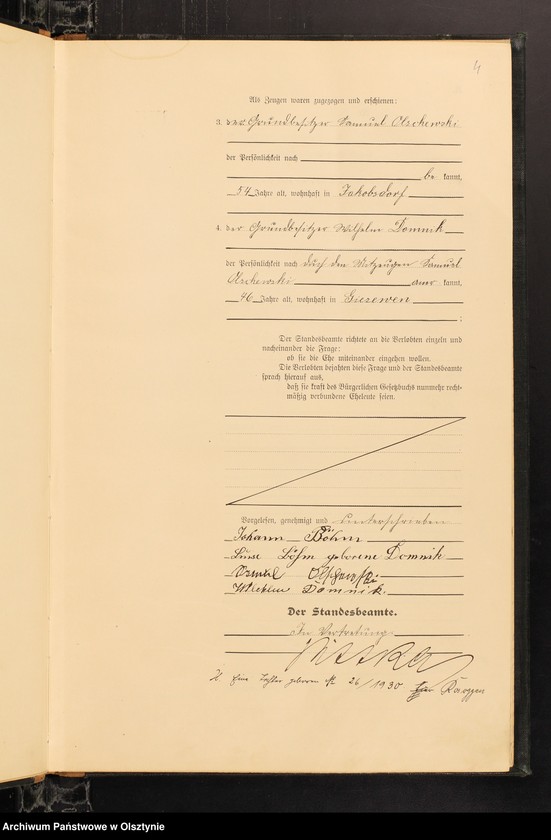 4
Als Zeugen waren zugezogen und erschienen:
3. der Grundbesitzer Samuel Olschewski
der Persönlichkeit nach
be kannt,
54 Jahre alt, wohnhaft in Jakobsdorf
4. der Grundbesitzer Wilhelm Domnik
der Persönlichkeit nach durch den Mitzeugen Samuel
Olschewski aner kannt,
46 Jahre alt, wohnhaft in Gresewen
;
Der Standesbeamte richtete an die Verlobten einzeln und
nacheinander die Frage:
ob sie die Ehe miteinander eingehen wollen.
Die Verlobten bejahten diese Frage und der Standesbeamte
sprach hierauf aus,
daß sie kraft des Bürgerlichen Gesetzbuchs nunmehr recht-
mäßig verbundene Eheleute seien.
Vorgelesen, genehmigt und unterschrieben
Johann Böhm
Luise Böhm geborene Domnik
Samuel Olschewski
Wilhelm Domnik
Der Standesbeamte.
In Vertretung.
Eine Tochter geboren Nr 26/1930
Archiwum Państwowe w Olsztynie